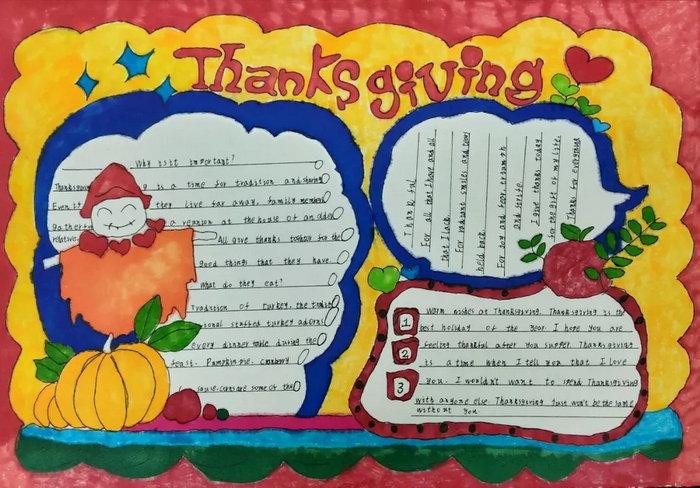 Thanksgiving
Why is it important?
Thanksgiving is a time for tradition and sharing
Even if they live far away, family members
gather for a reunion at the house of an older
relative. All give thanks together for the
good things that they have.
What do they eat?
Tradition of turkey, the tradit
ional stuffed turkey adorns
every dinner table during the
feast. Pumpkin pie, cranberry
sauce, corn are some of the
Thankful
For all that I have and all
that I lack
For radiant smiles and tears
held back
For joy and tears, triumph
and strife
I give thanks today
for the gift of my life.
Thanks for everything
1
2
3
Warm wishes at Thanksgiving. Thanksgiving is the
best holiday of the year. I hope you are
feeling thankful after you supper. Thanksgiving
is a time when I tell you that I love
you. I wouldn't want to spend Thanksgiving
with anyone else. Thanksgiving just won't be the same
without you